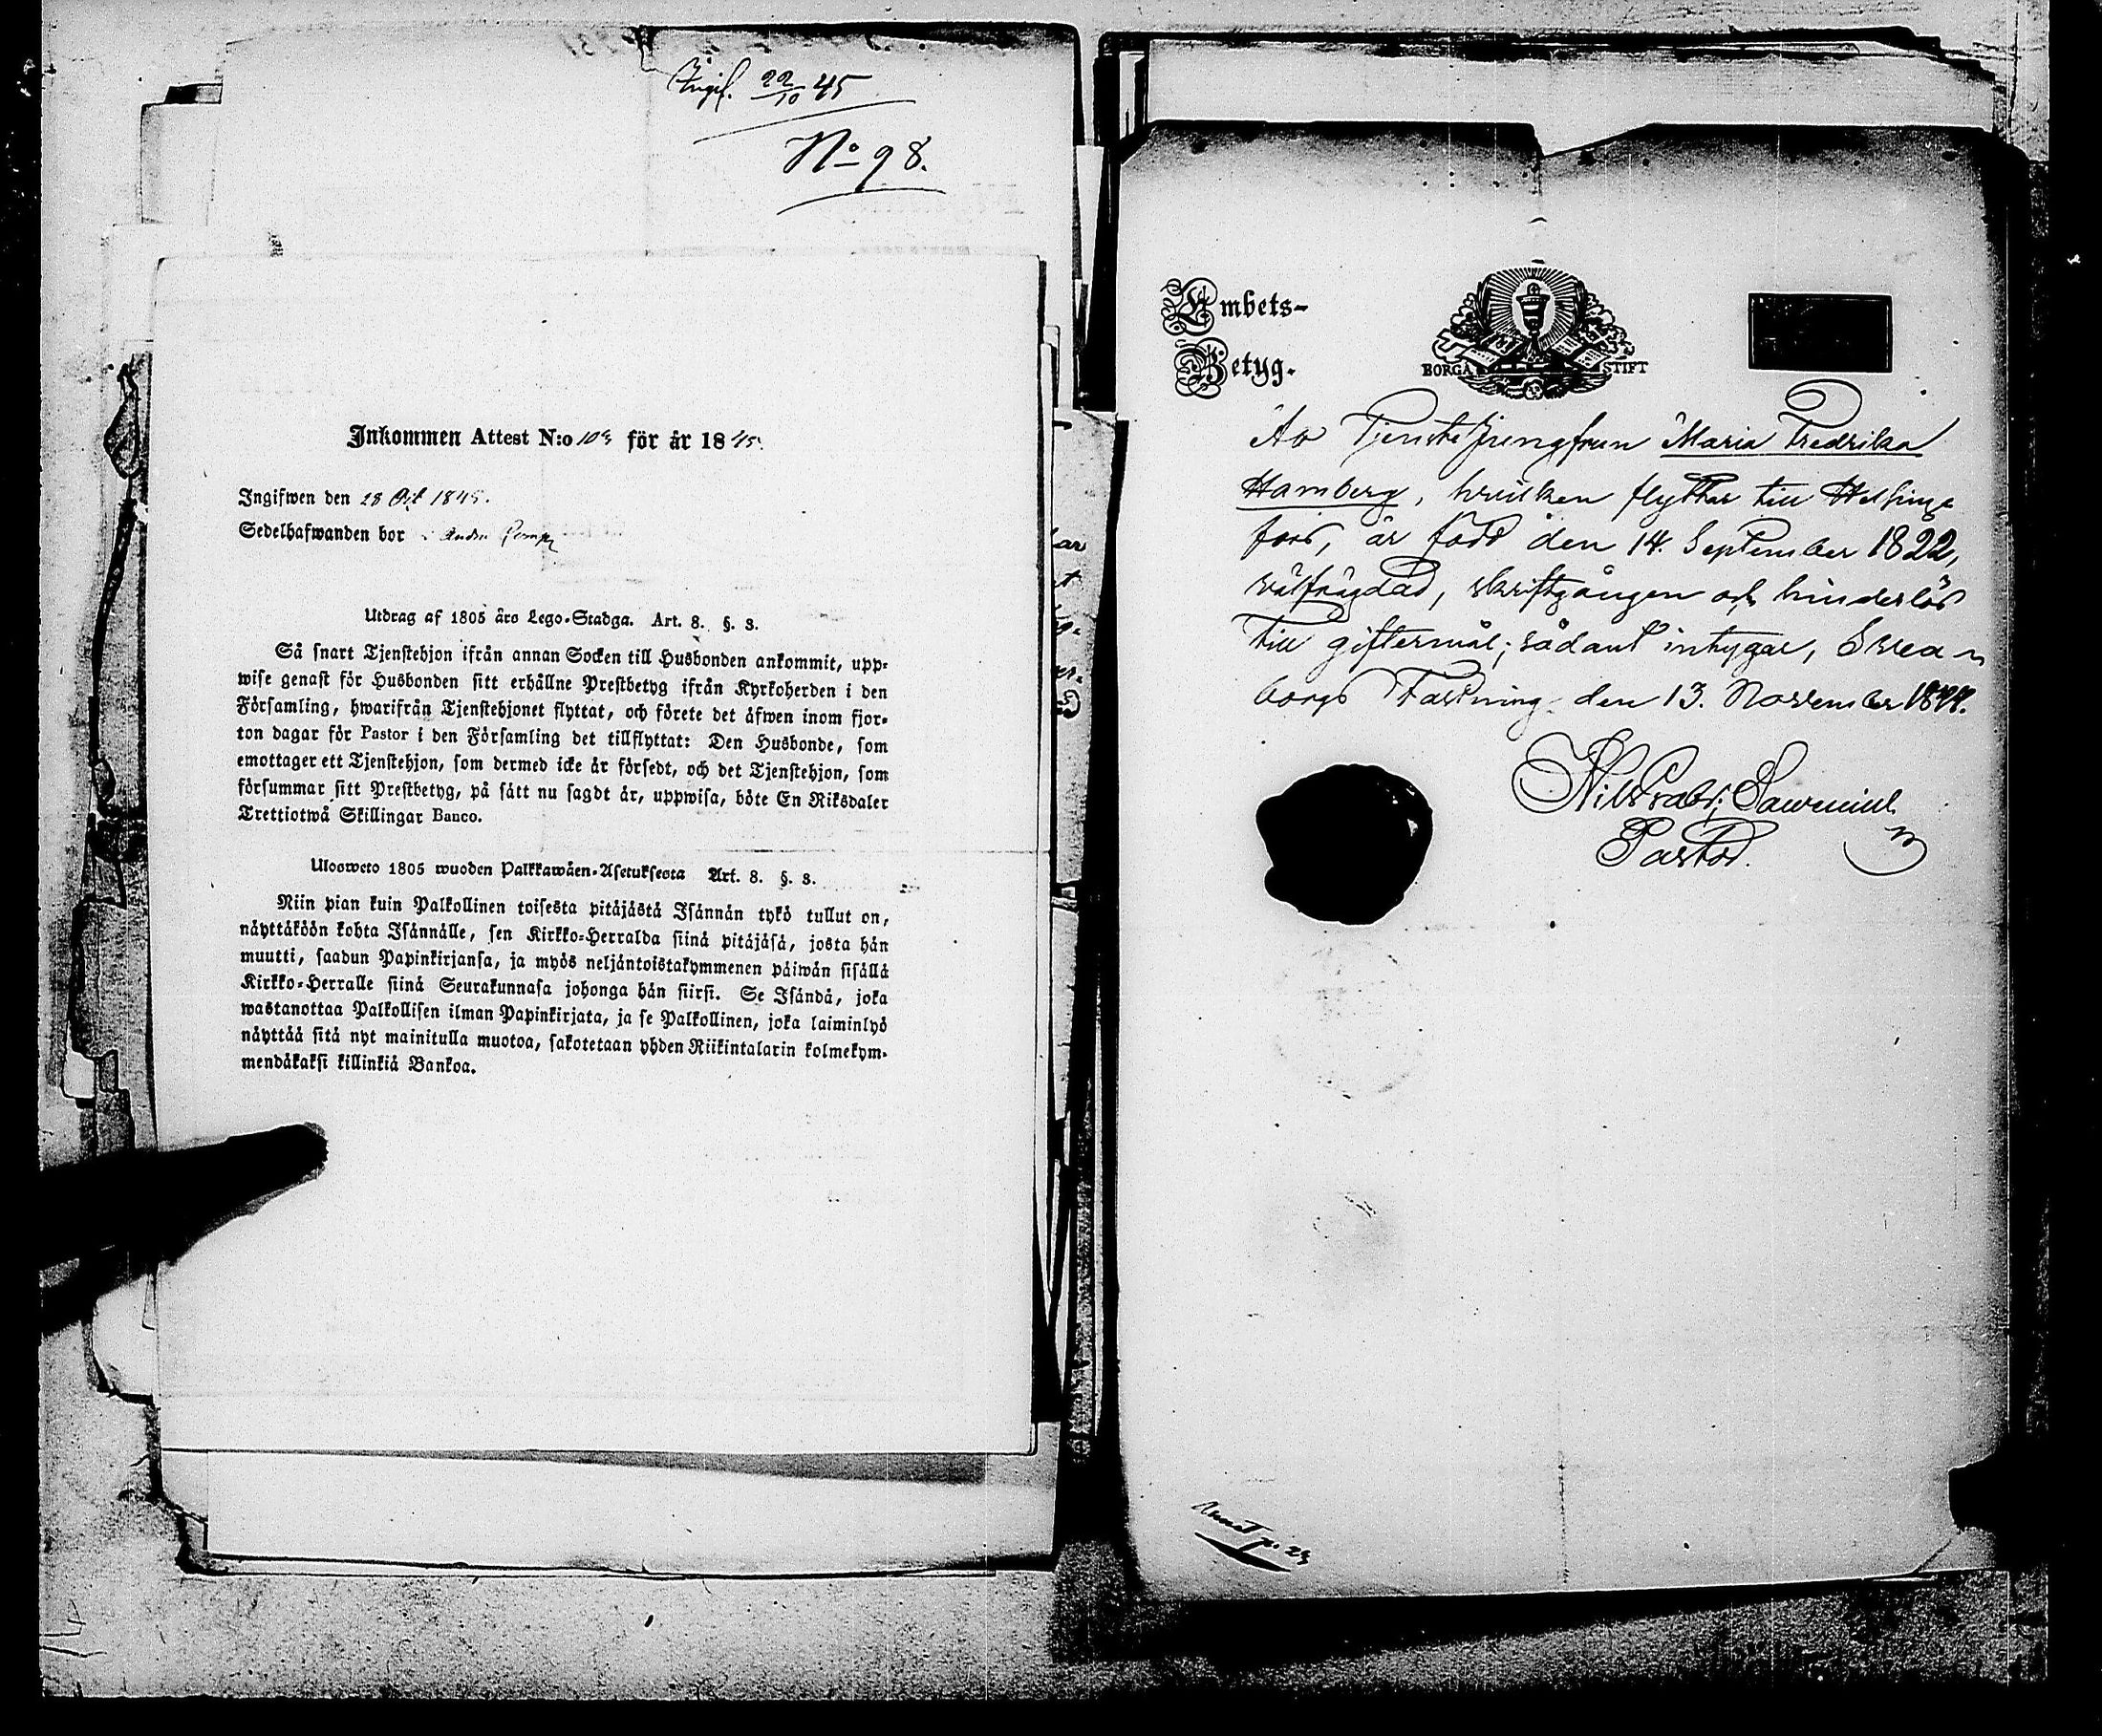 Ingif. 22/10 45
No 98.
Inkommen Attest N:o 103 för år 1845.
Ingifwen den 28 Oct 1845.
Sedelhafwanden bor i Andra
Utdrag af 1805 års Lego-Stadga. Art. 8. §. 3.
Så snart Tjenstehjon ifrån annan Socken till Husbonden ankommit, upp-
wise genast för Husbonden sitt erhållne Prestbetyg ifrån Kyrkoherden i den
Församling, hwarifrån Tjenstehjonet flyttat, och förete det äfwen inom fjor-
ton dagar för Pastor i den Församling det tillflyttat: Den Husbonde, som
emottager ett Tjenstehjon, som dermed icke är försedt, och det Tjenstehjon, som
försummar sitt Prestbetyg, på sätt nu sagdt är, uppwisa, böte En Riksdaler
Trettiotwå Skillingar Banco.
Ulosweto 1805 wuoden Palkkawäen-Asetuksesta Art. 8. §. 3.
Niin pian kuin Palkollinen toisesta pitäjästä Isännän tykö tullut on,
näyttäköön kohta Isännälle, sen Kirkko-Herralda siinä pitäjäsä, josta hän
muutti, saadun Papinkirjansa, ja myös neljäntoistakymmenen päiwän sisällä
Kirkko-Herralle siinä Seurakunnasa johonga hän siirsi. Se Isändä, joka
wastanottaa Palkollisen ilman Papinkirjata, ja se Palkollinen, joka laiminlyö
näyttää sitä nyt mainitulla muotoa, sakotetaan yhden Riikintalarin kolmekym-
mendäkaksi killinkiä Bankoa.
Embets-
Betyg.
BORGÅ STIFT
At Tjenstejungfrun Maria Fredrika
Hamberg, hvilken flyttar till Helsing-
fors, är född den 14. September 1822,
välfrägdad, skriftgången och hinderlös
till giftermål; sådant intygar, Svea-
borgs Fästning den 13. November 1844.
Pastor.
Annot p. 23